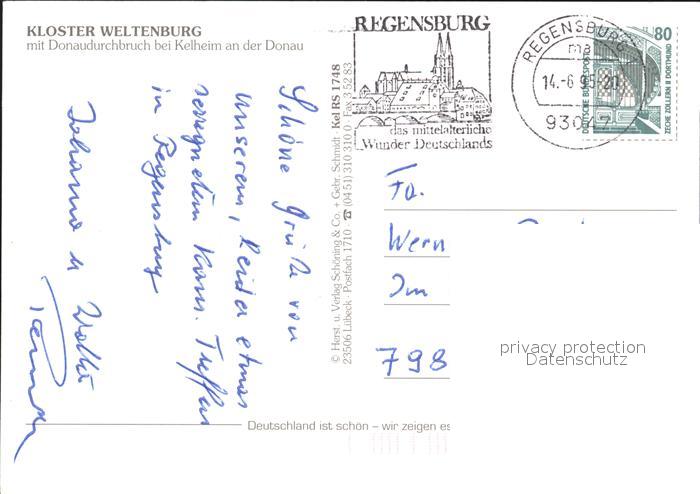 KLOSTER WELTENBURG
mit Donaudurchbruch bei Kelheim an der Donau
Schöne Grüße von
unserem, leider etwas
verregneten Kam. Treffen
in Regensburg
Johanna u Walter
© Herst. u. Verlag Schöning & Co. + Gebr. Schmidt
23506 Lübeck · Postfach 1710 · ☎ (04 51) 310 310 0
Kel RS 1748
Fax 3 52 83
Deutschland ist schön – wir zeigen es
REGENSBURG
das mittelalterliche
Wunder Deutschlands
REGENSBURG
ma
14.-6.95.-20
93047
80
DEUTSCHE BUNDESPOST
ZECHE ZOLLERN II DORTMUND
Fa.
Wern
Im
798
privacy protection
Datenschutz